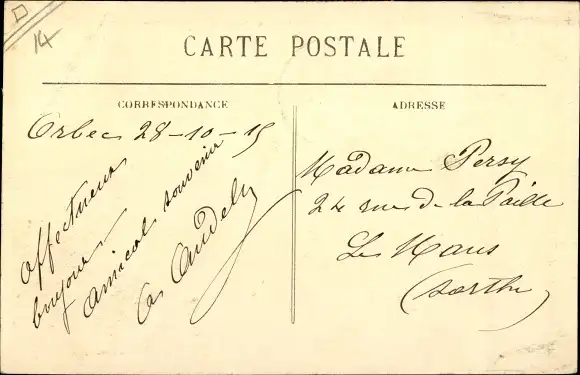 14
CARTE POSTALE
CORRESPONDANCE
Orbec 28-10-15
affectueux
bonjour
amical souvenir
ADRESSE
Madame Persy
24 rue de la Paille
Le Mans
(Sarthe)